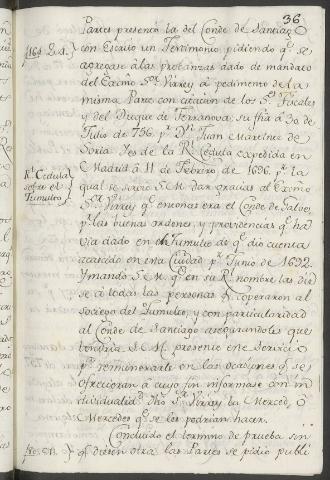 36
Parte presento la del Conde de Santiago
con Escrito un Testimonio pidiendo q.e se
agregase à las probanzas dado de mandato
del Exmõ S.or Virrey à pedimento de la
misma Parte con citacion de los S.res Fiscales
y del Duque de Terranova, su fha à 30 de
Julio de 736. p.r D.n Juan Martinez de
Soria. Y es de la R.l Cedula expedida en
R.l Cedula
sobre el
Tumulto
Madrid à 11 de Febrero de 1696. p.r la
qual se sirvio S. M. dar gracias al Exmõ
S.or Virrey q.e entonces era el Conde de Galve,
p.r las buenas ordenes, y providencias q.e ha
via dado en el Tumulto de q.e dio cuenta
acaecido en esta Ciudad p.r Junio de 1692.
Y mando S. M. q.e en su R.l nombre las die
se à todas las personas q.e coperaron al
sosiego del Tumulto, y con particularidad
al Conde de Santiago asegurandoles que
tendria S. M. presente este Servicio
p.a remunerarle en las ocasiones q.e se
ofrecieran à cuyo fin informase con in
dividualidad dho S.or Virrey la Merced, ó
Mercedes q.e se les podrian hacer.
Concluido el termino de prueba sin
q.e diesen otra las Partes se pidio publi